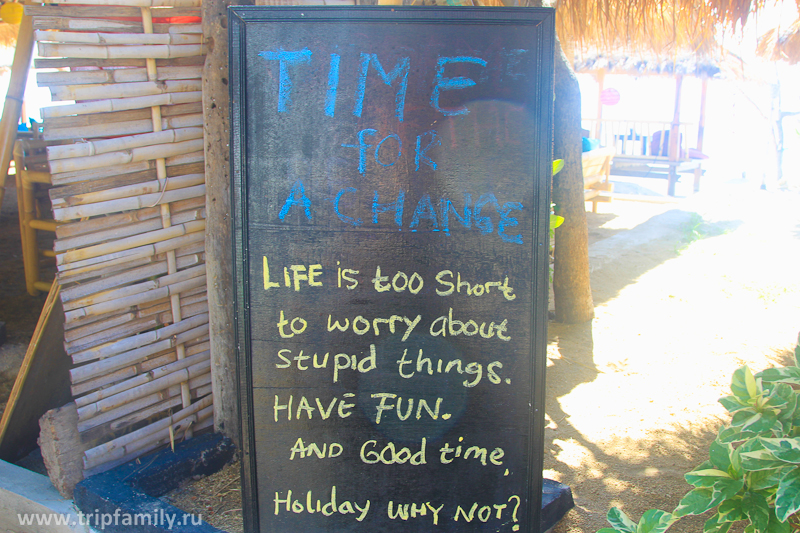 TIME
FOR
A CHANGE
LIFE is too Short
to worry about
stupid things.
HAVE FUN.
AND Good time,
Holiday WHY NOT?
www.tripfamily.ru